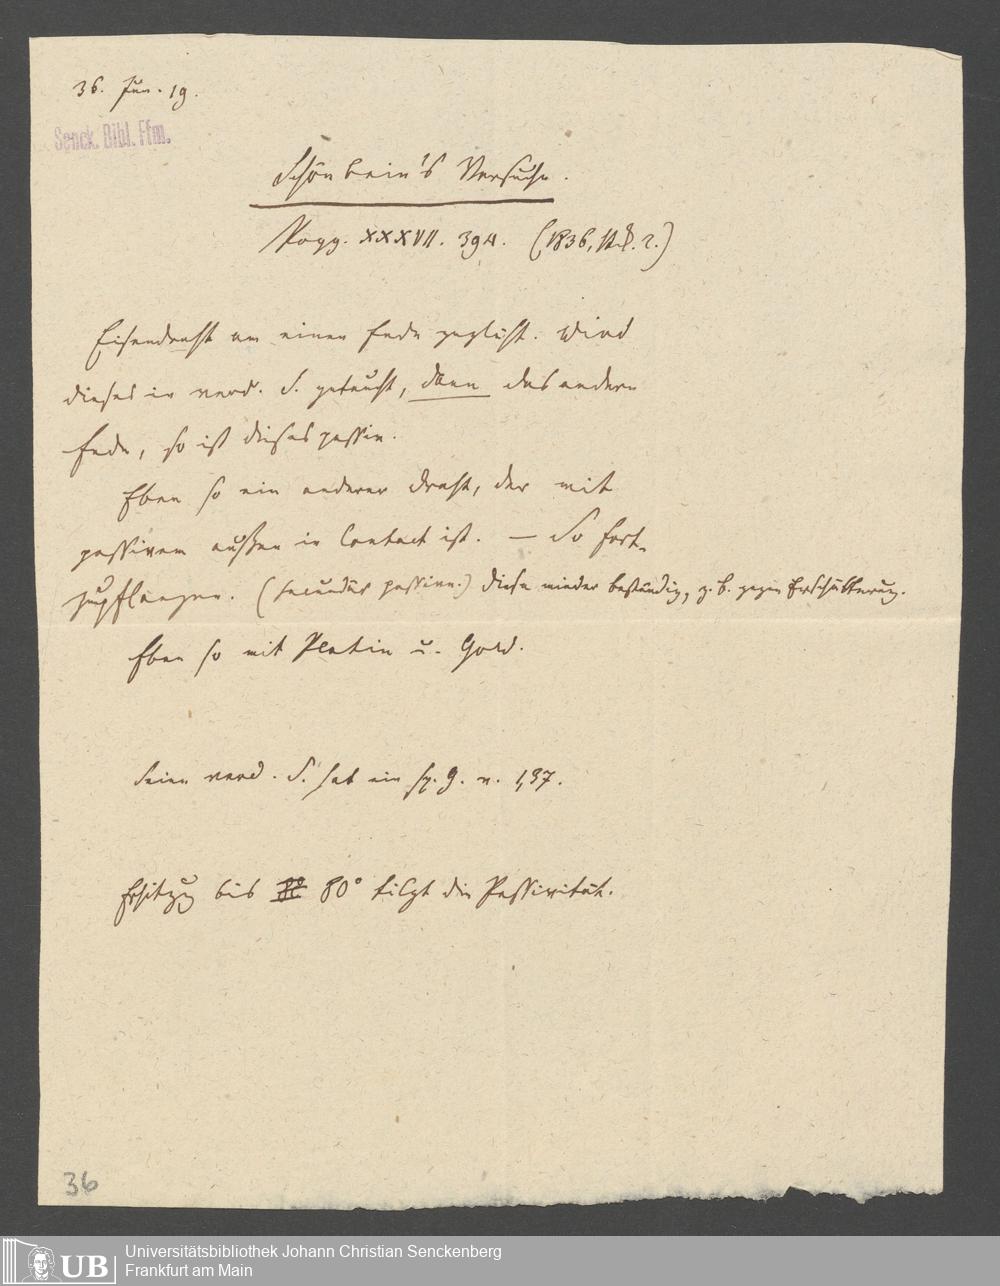 36. Jun. 19.
Senck. Bibl. Ffm.
Schönbein's Versuche.
Pogg. XXXVII. 394. (1836, St. 2.)
Eisendraht am einen Ende geglüht. Wird
dieses in verd. S. getaucht, dann das andere
Ende, so ist dieses passiv.
Eben so ein anderer Draht, der mit
passivem außen in Contact ist. — So fort-
zupflanzen. (secundär passive.) Diese minder beständig, z. B. gegen Erschütterung.
Eben so mit Platin u. Gold.
Seine verd. S. hat ein sp. G. v. 1,37.
Erhitzung bis 80° tilgt die Passivität.
36
UB
Universitätsbibliothek Johann Christian Senckenberg
Frankfurt am Main